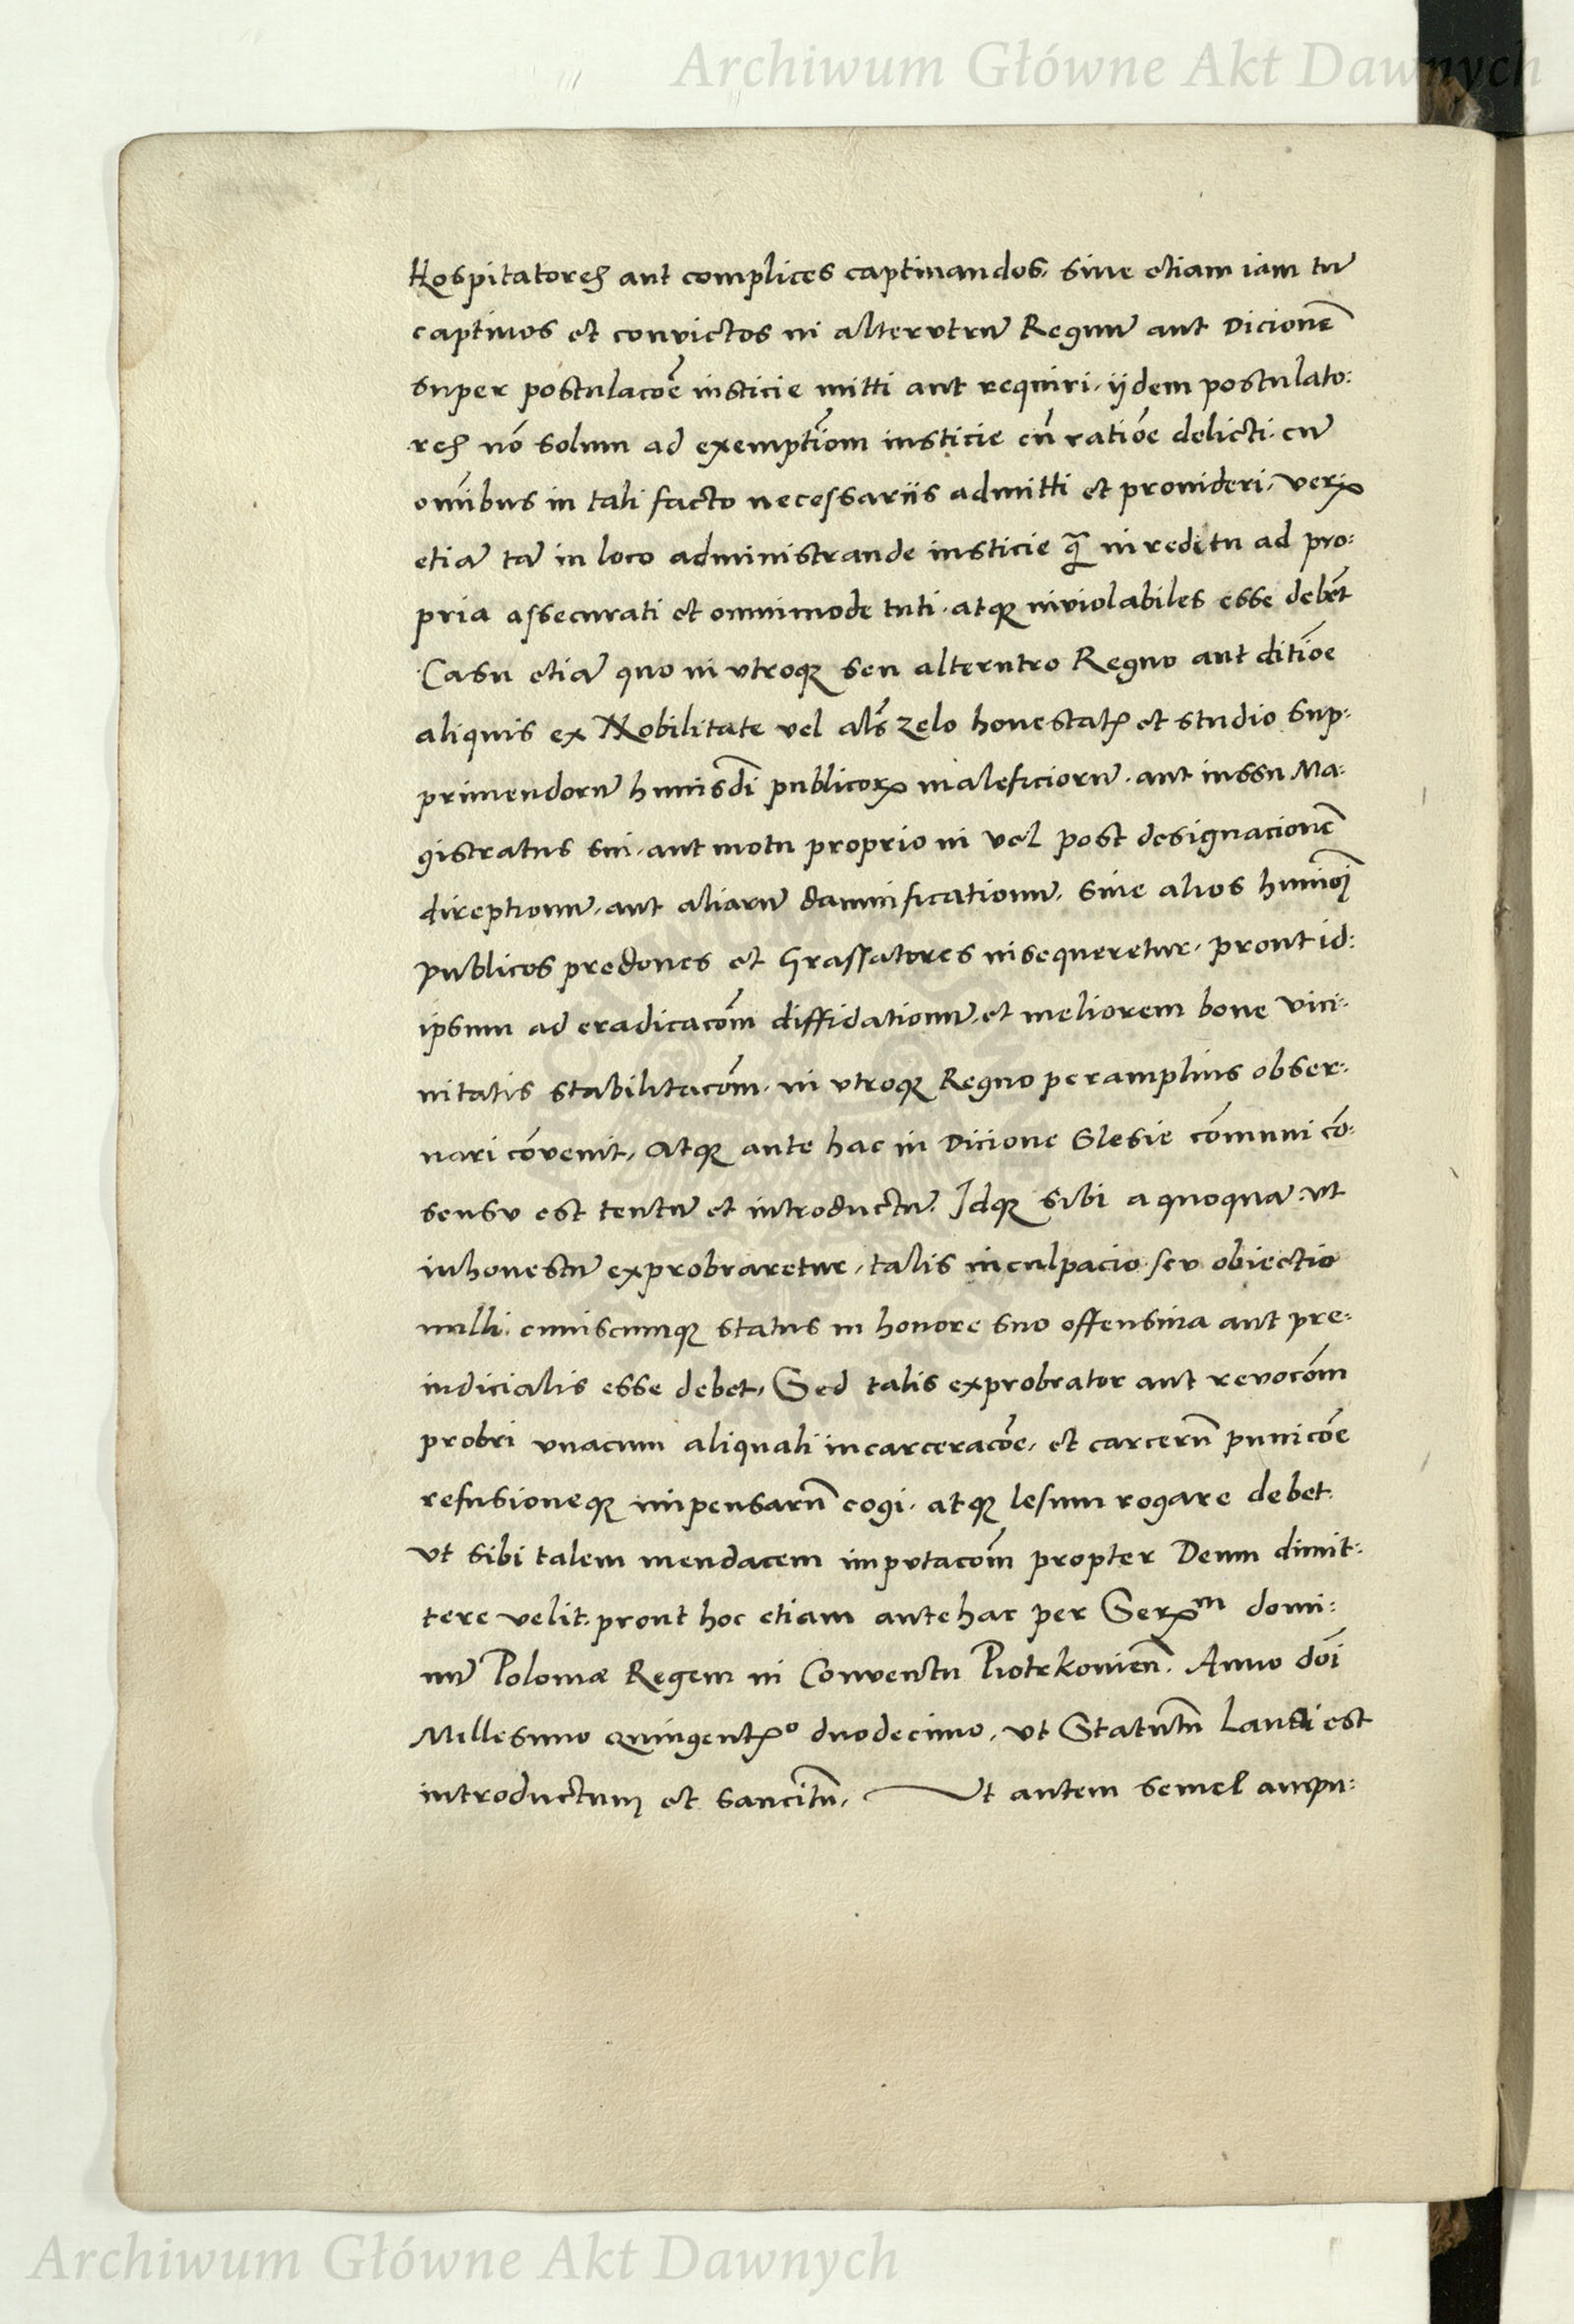 Archiwum Główne Akt Dawnych
Hospitatores aut complices captiuandos, siue etiam iam tū
captiuos et convictos in alterutrū Regnū aut Dicionē
super postulacōe iusticie mitti aut requiri, ijdem postulato:
res nō solum ad exemptiōm iusticie cū ratiōe delicti, cū
omībus in tali facto necessariis admitti et prouideri, verū
etiā tā in loco administrande iusticie q̄ in reditu ad pro:
pria assecurati et omnimode tuti, atq inviolabiles esse debēt
Casu etiā quo in vtroq seu alterutro Regno aut ditiōe
aliquis ex Nobilitate vel als̄ zelo honestatis et studio sup:
primendorū huiusd̄i publicorum maleficiorū, aut iussu Ma:
gistratus sui, aut motu proprio in vel post designacionē
direptionū, aut aliarū damnificationū, siue alios huiuōi
publicos predones et Grassatores insequeretur, prout id:
ipsum ad eradicacōm diffidationū, et meliorem bone vici:
nitatis stabilitacōm, in vtroq Regno peramplius obser:
uari cōvenit, Atq ante hac in Dicione Slesie cōmuni cō:
sensu est tentū et introductū, Idq sibi a quoquā vt
inhonestū exprobraretur, talis inculpacio seu obiectio
nulli cuiuscumq status in honore suo offensiua aut pre:
iudicialis esse debet, Sed talis exprobrator aut revocōm
probri vnacum aliquali incarceracōe, et carcerū punicōe
refusioneq impensarū cogi, atq lesum rogare debet
vt sibi talem mendacem imputacōm propter Deum dimit:
tere velit, prout hoc etiam antehac per Serᵐ domi:
nū Poloniæ Regem in Conventu Piotrkovieñ. Anno dōi
Millesimo Quingentº duodecimo, vt Statutū Laudi est
introductum et sancitū, Ut autem semel ampu:
Archiwum Główne Akt Dawnych